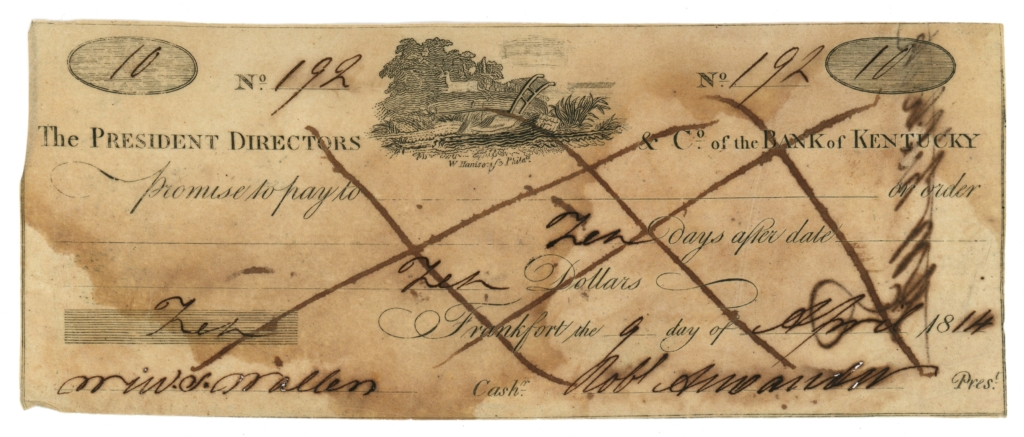 10 No. 192 No. 192 10
The PRESIDENT DIRECTORS & Co. of the BANK of KENTUCKY
W. Harrison Philad
Promise to pay to or order
Ten days after date
Ten Dollars
Ten Frankfort, the 9 day of April 1814
Cashr. Robt. Alexander Prest.